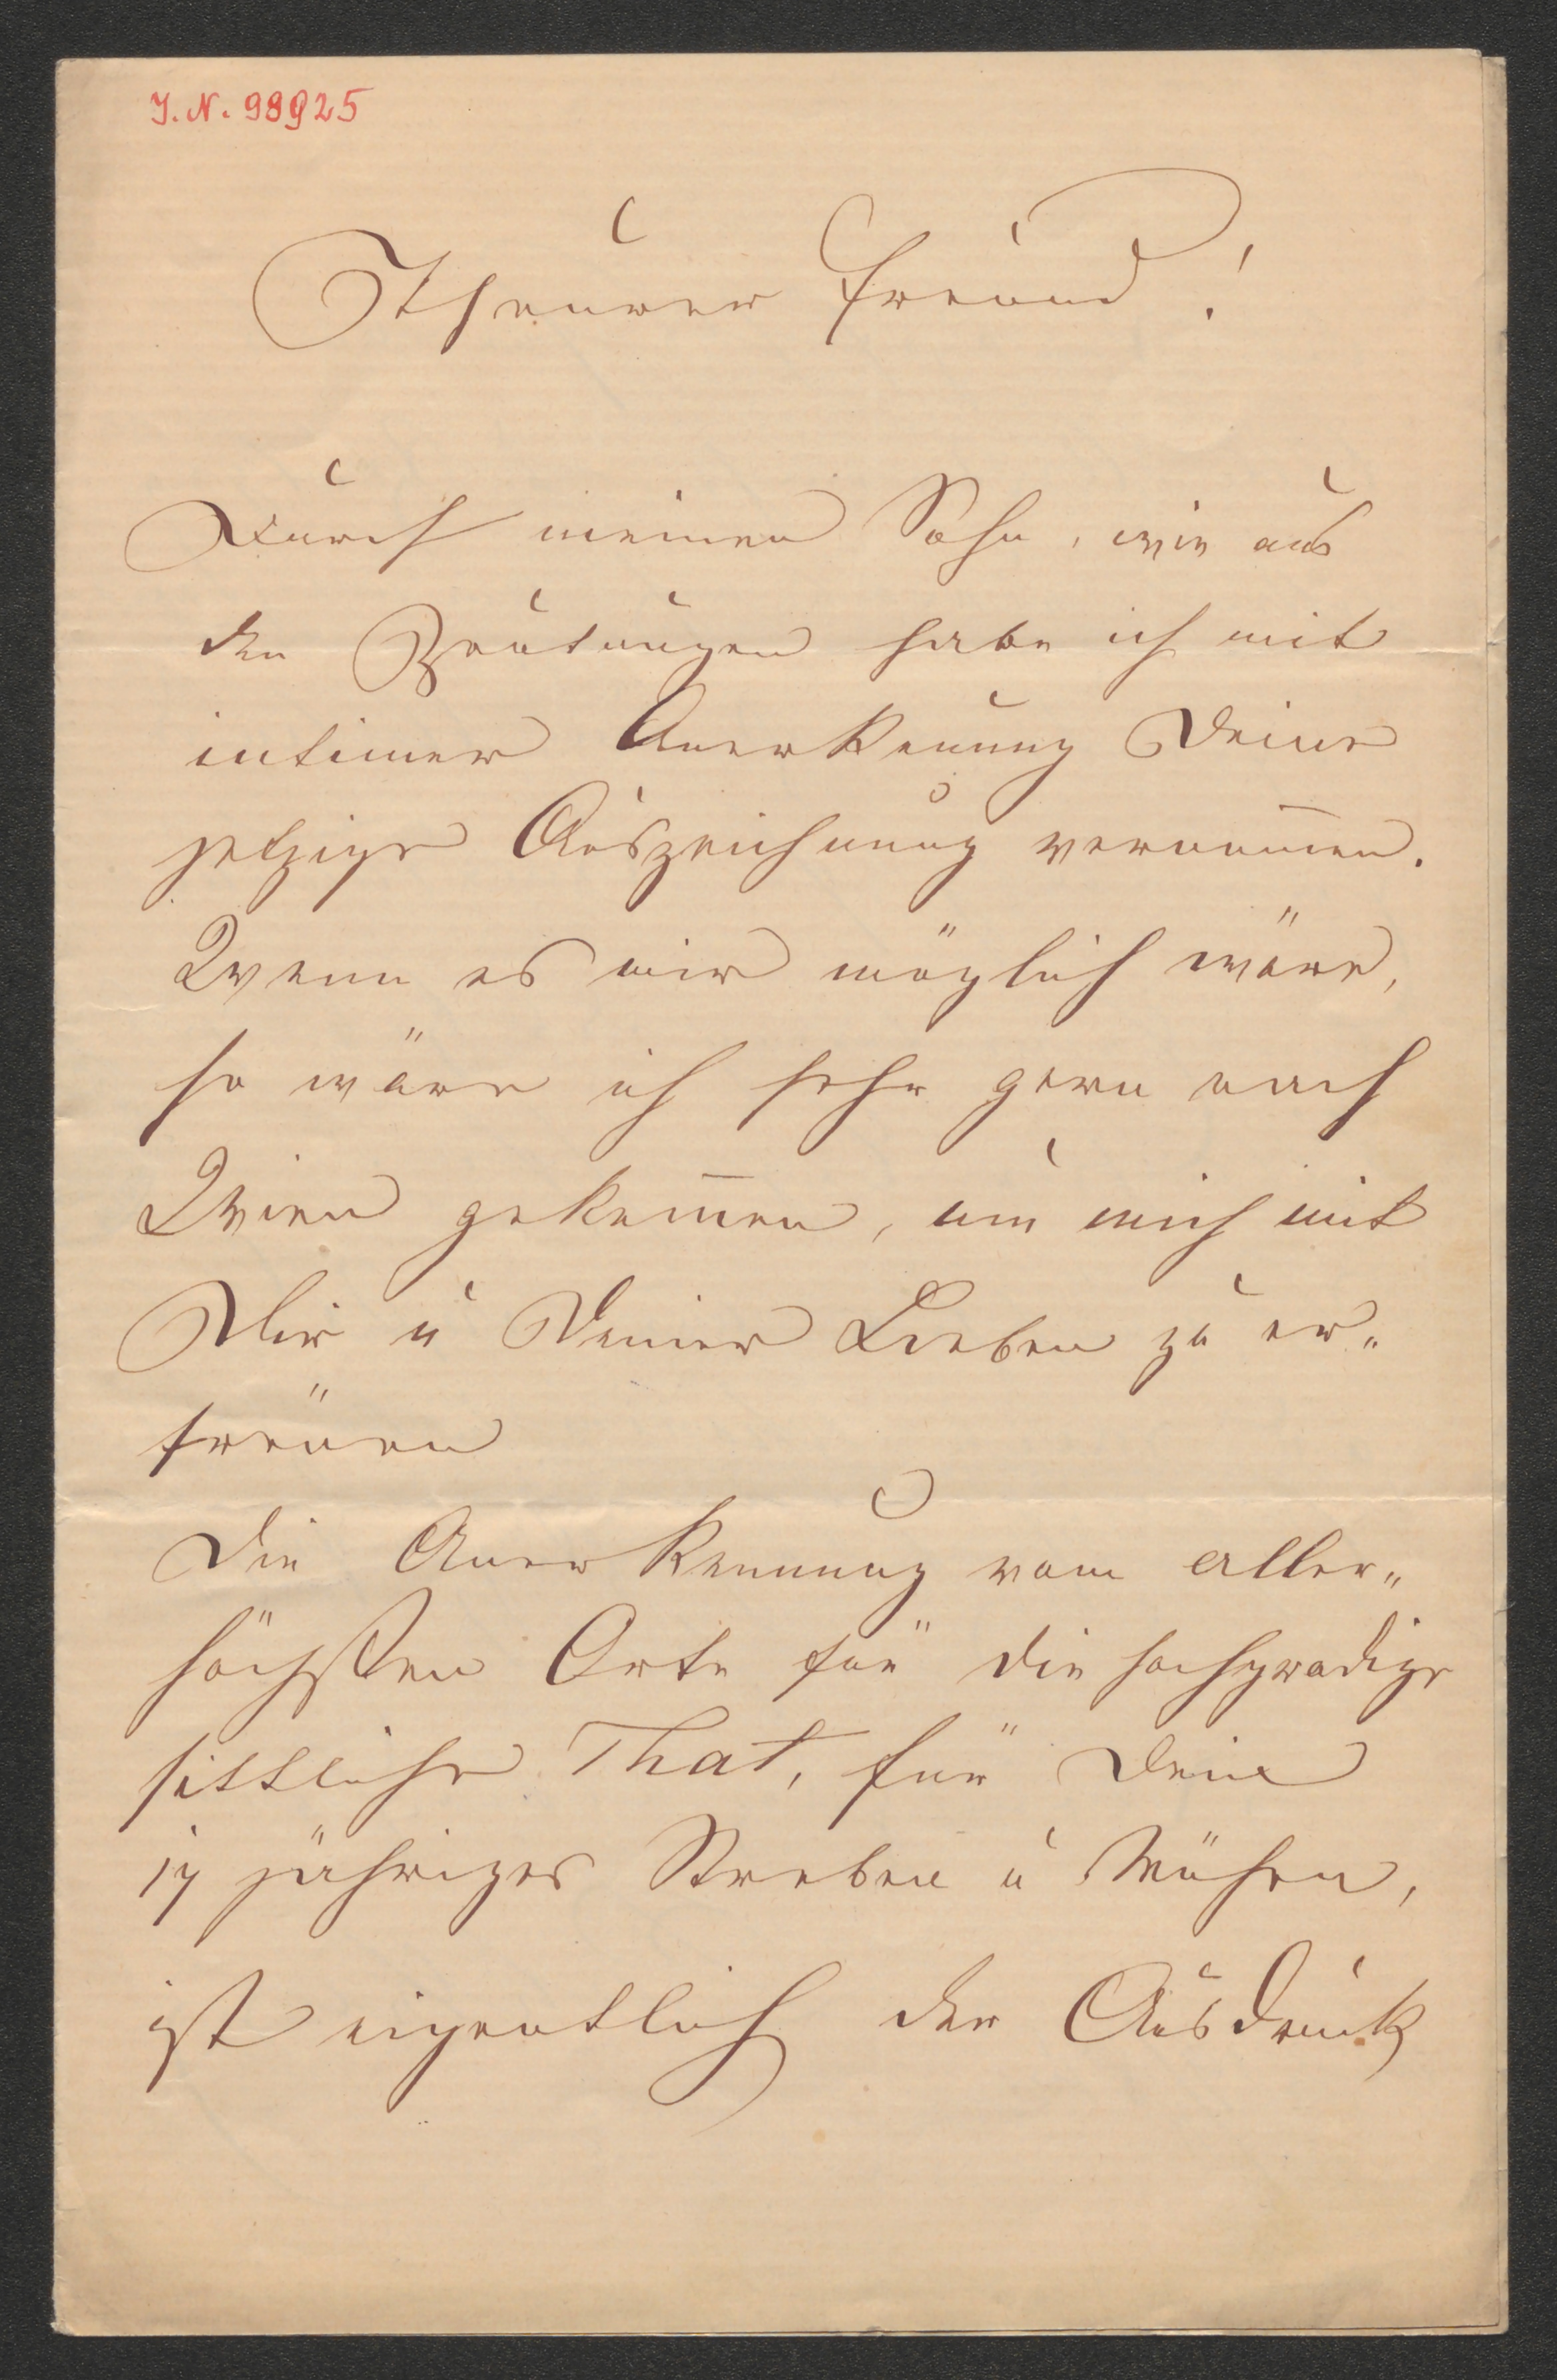 J. N. 98925
Theurer Freund!
Durch meinen Sohn, wie aus
den Zeitungen habe ich mit
intimer Anerkenung Deine
jetzige Auszeichnung vernom̄en.
Wenn es mir möglich wäre,
so wäre ich sehr gern nach
Wien gekom̄en, um mich mit
Dir u Deiner Lieben zu er„
freuen
Die Anerkennung vom aller„
höchsten Orte für die hochgradige
sittliche That, für Dein
17 jähriges Streben u Mühen,
ist eigentlich der Ausdruck